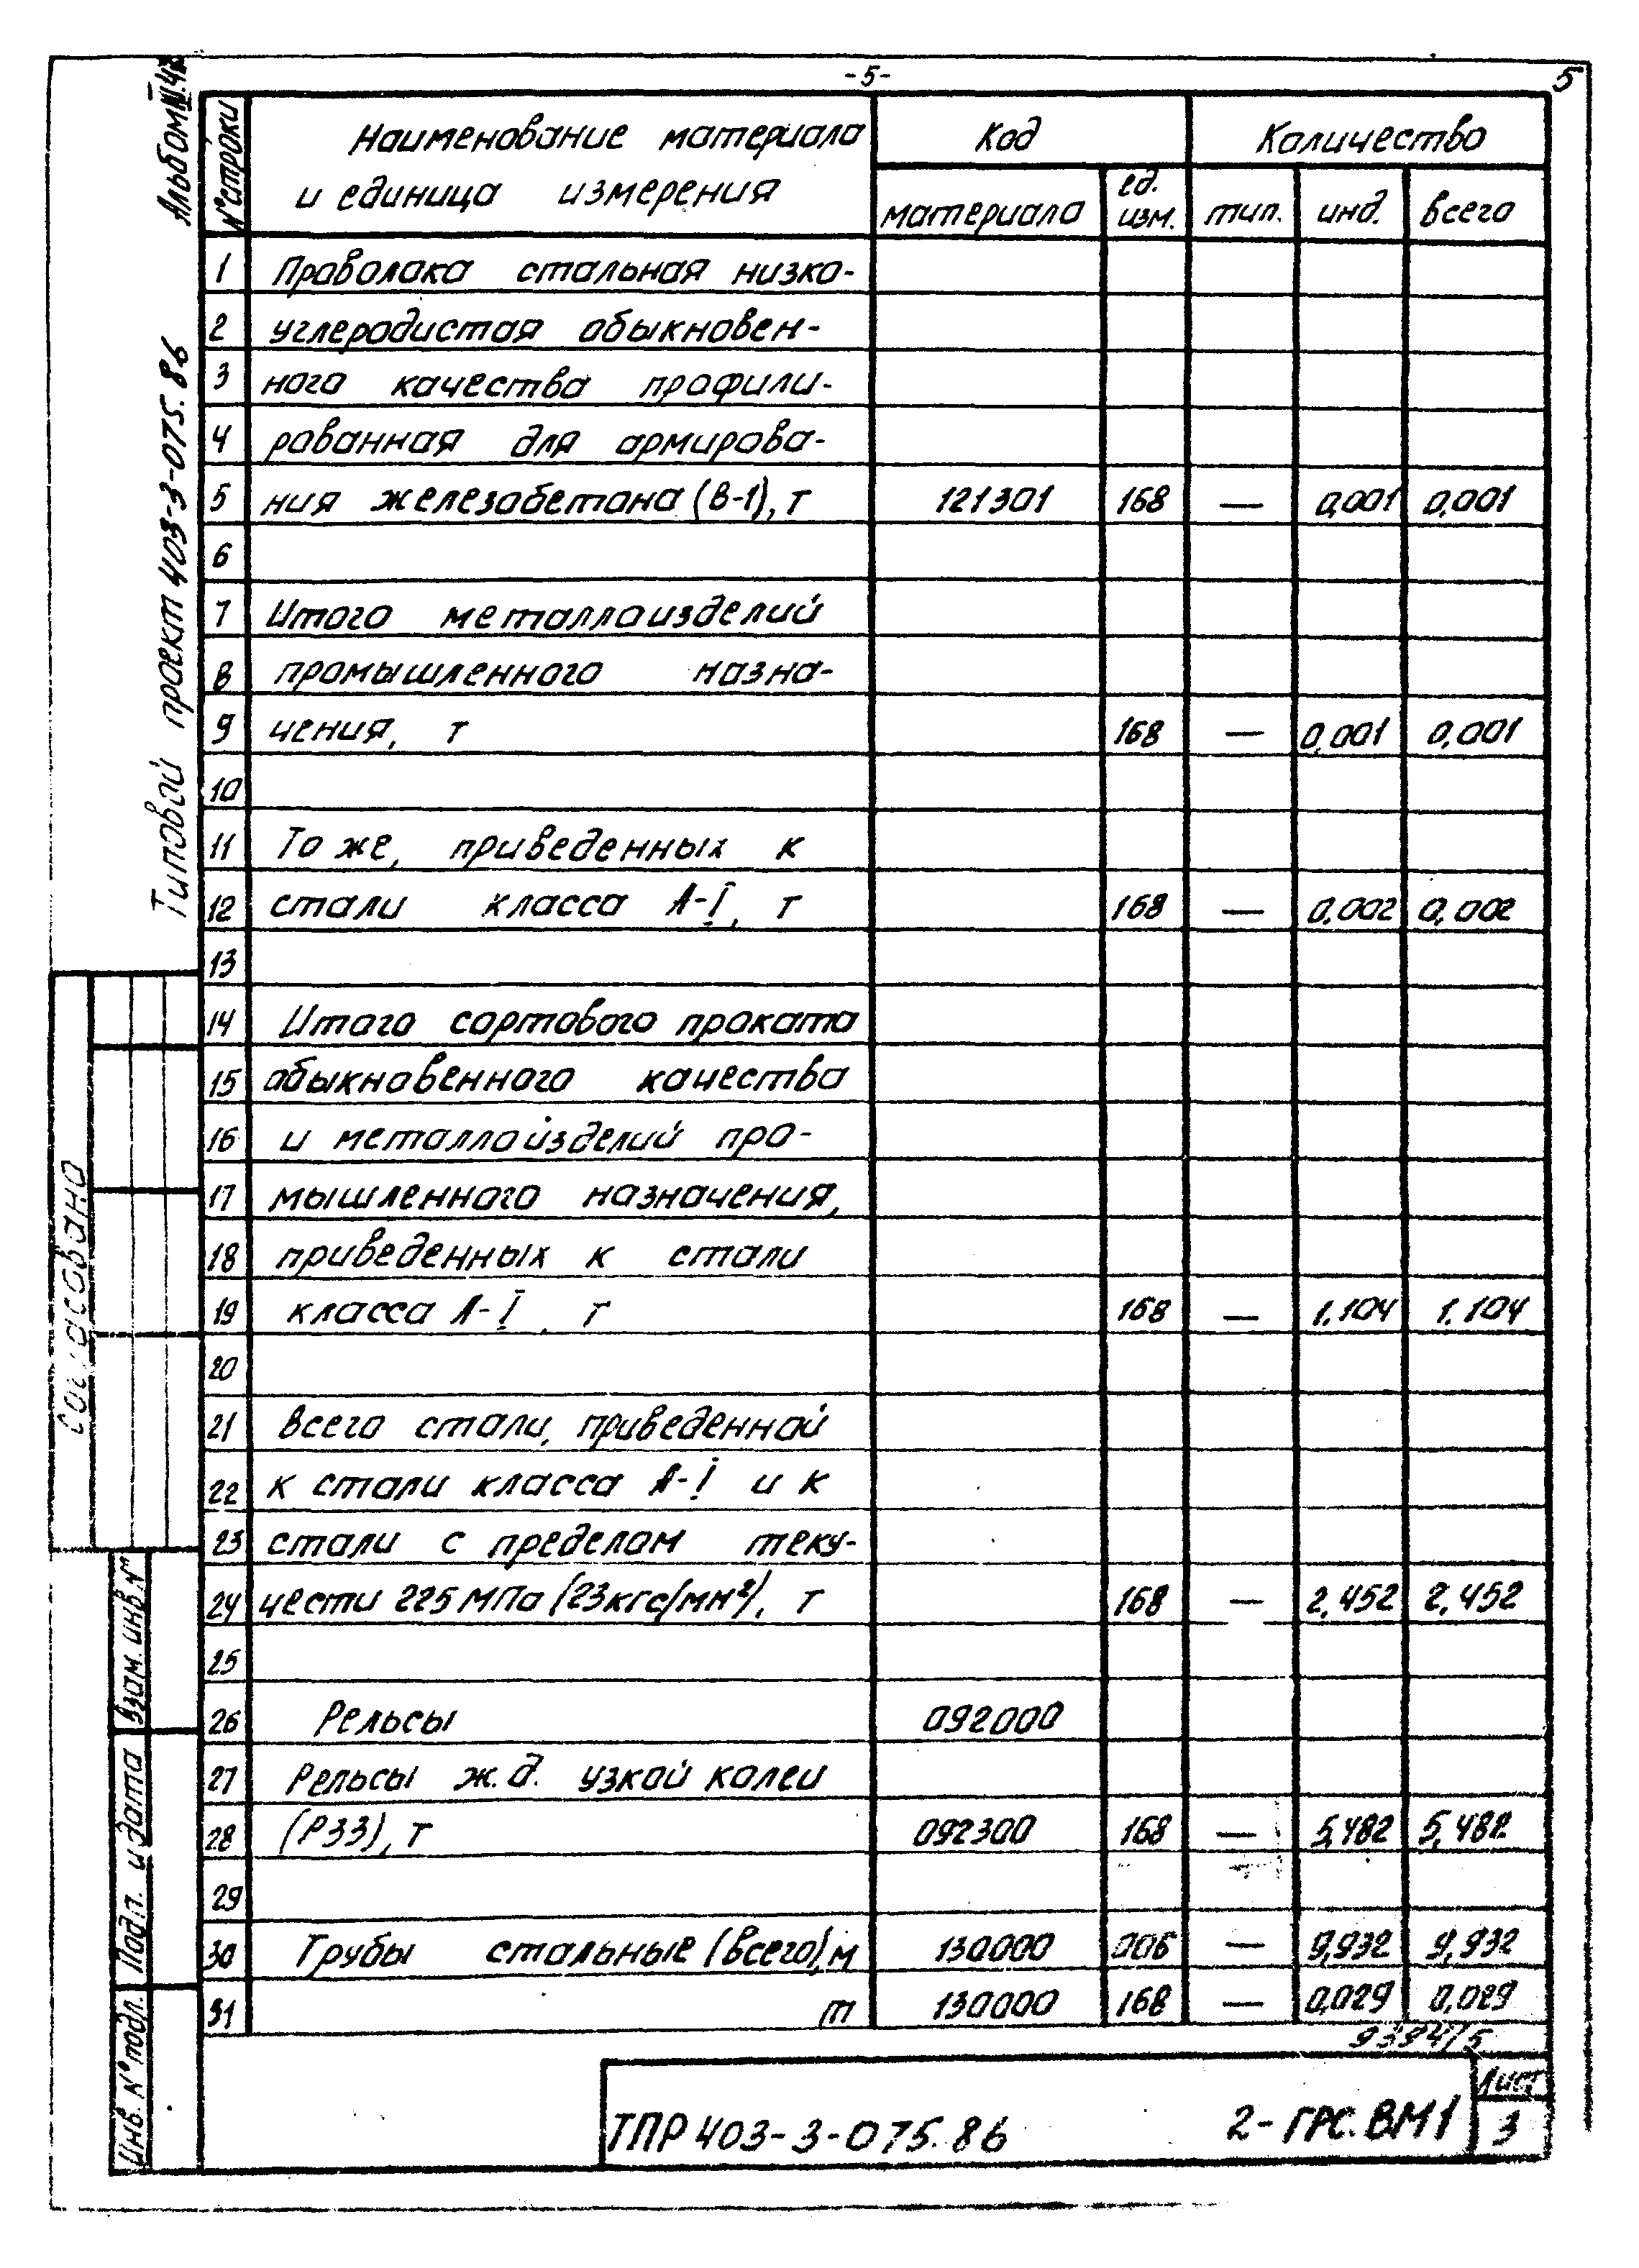 -5-
5
Альбом
Типовой проект 403-3-075.86
N° строки | Наименование материала и единица измерения | Код | Количество
материала | ед. изм. | тип. | инд. | всего
1 Проволока стальная низко-
2 углеродистая обыкновен-
3 ного качества профили-
4 рованная для армирова-
5 ния железобетона (В-1), т 121301 168 — 0,001 0,001
6
7 Итого металлоизделий
8 промышленного назна-
9 чения, т 168 — 0,001 0,001
10
11 То же, приведенных к
12 стали класса А-I, т 168 — 0,002 0,002
13
14 Итого сортового проката
15 обыкновенного качества
16 и металлоизделий про-
17 мышленного назначения,
18 приведенных к стали
19 класса А-I, т 168 — 1.104 1.104
20
21 Всего стали, приведенной
22 к стали класса А-I и к
23 стали с пределом теку-
24 чести 225 МПа (23кгс/мм²), т 168 — 2,452 2,452
25
26 Рельсы 092000
27 Рельсы ж.д. узкой колеи
28 (Р33), т 092300 168 — 5,482 5,482
29
30 Трубы стальные (всего), м 130000 006 — 9,932 9,932
31 т 130000 168 — 0,029 0,029
9394/5
ТПР 403-3-075.86 2-ГРС.ВМ1
Лист
3
Согласовано
Взам. инв. N°
Подп. и дата
Инв. N° подл.